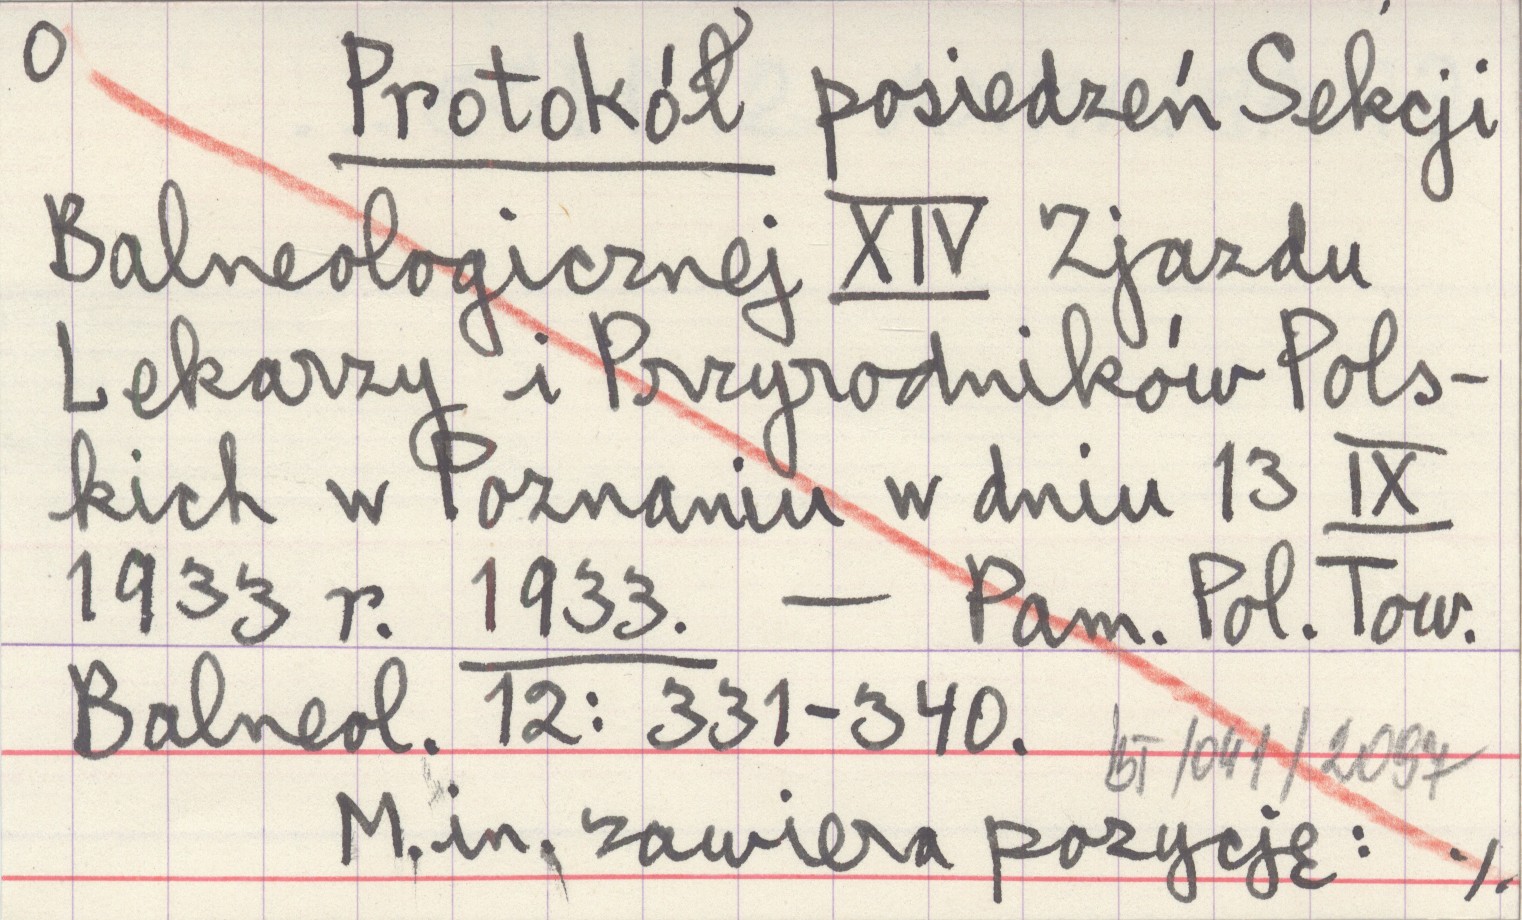 O Protokół posiedzeń Sekcji
Balneologicznej XIV Zjazdu
Lekarzy i Przyrodników Pols-
kich w Poznaniu w dniu 13 IX
1933 r. 1933. — Pam. Pol. Tow.
Balneol. 12: 331-340.
BT/041/2097
M.in. zawiera pozycję: ./.